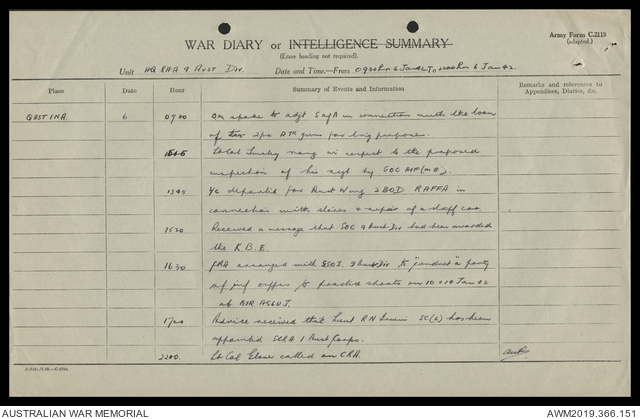 Army Form C.2118
(adapted.)
WAR DIARY or INTELLIGENCE SUMMARY
(Erase heading not required).
Unit HQ RAA 9 Aust Div. Date and Time—From 0920 Hrs 6 Jan 42 To 2200 Hrs 6 Jan 42
Place Date Hour Summary of Events and Information Remarks and references to Appendices, Diaries, &c.
QASTINA 6 0920 BM spoke to adjt in connection with the loan
of two 2 pr A Tk guns for purposes.
Lt Col rang in respect to the proposed
inspection of his regt by GOC AIF (ME).
1345 departed for Aust Wing 2 BOD RAFFA in
connection with stores & repair of a staff car.
1520 Received a message that GOC 9 Aust Div had been awarded
the K.B.E.
1630 CRA arranged with GSO.I. 9 Aust Div to "conduct" a party
of inf offrs to practice shoots on 10 Jan 42
at BIR ASLUJ.
1700 Advice received that Lieut R N SC(L) has been
appointed SCRA 1 Aust Corps.
2200 Lt Col called on CRA.
AUSTRALIAN WAR MEMORIAL AWM2019.366.151